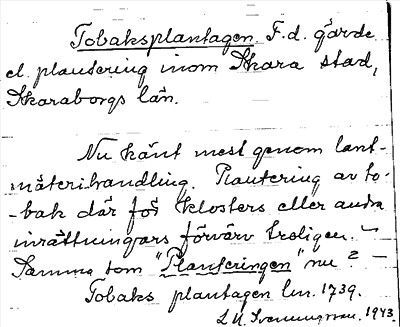 Tobaksplantagen. F.d. gärde
el. plantering inom Skara stad,
Skaraborgs län.
Nu känt mest genom lant-
mäterihandling. Plantering av to-
-bak där för klosters eller andra
inrättningars förvärv troligen. ~
Samma som "Planteringen" nu? -
Tobaks plantagen lm. 1739.
1943.